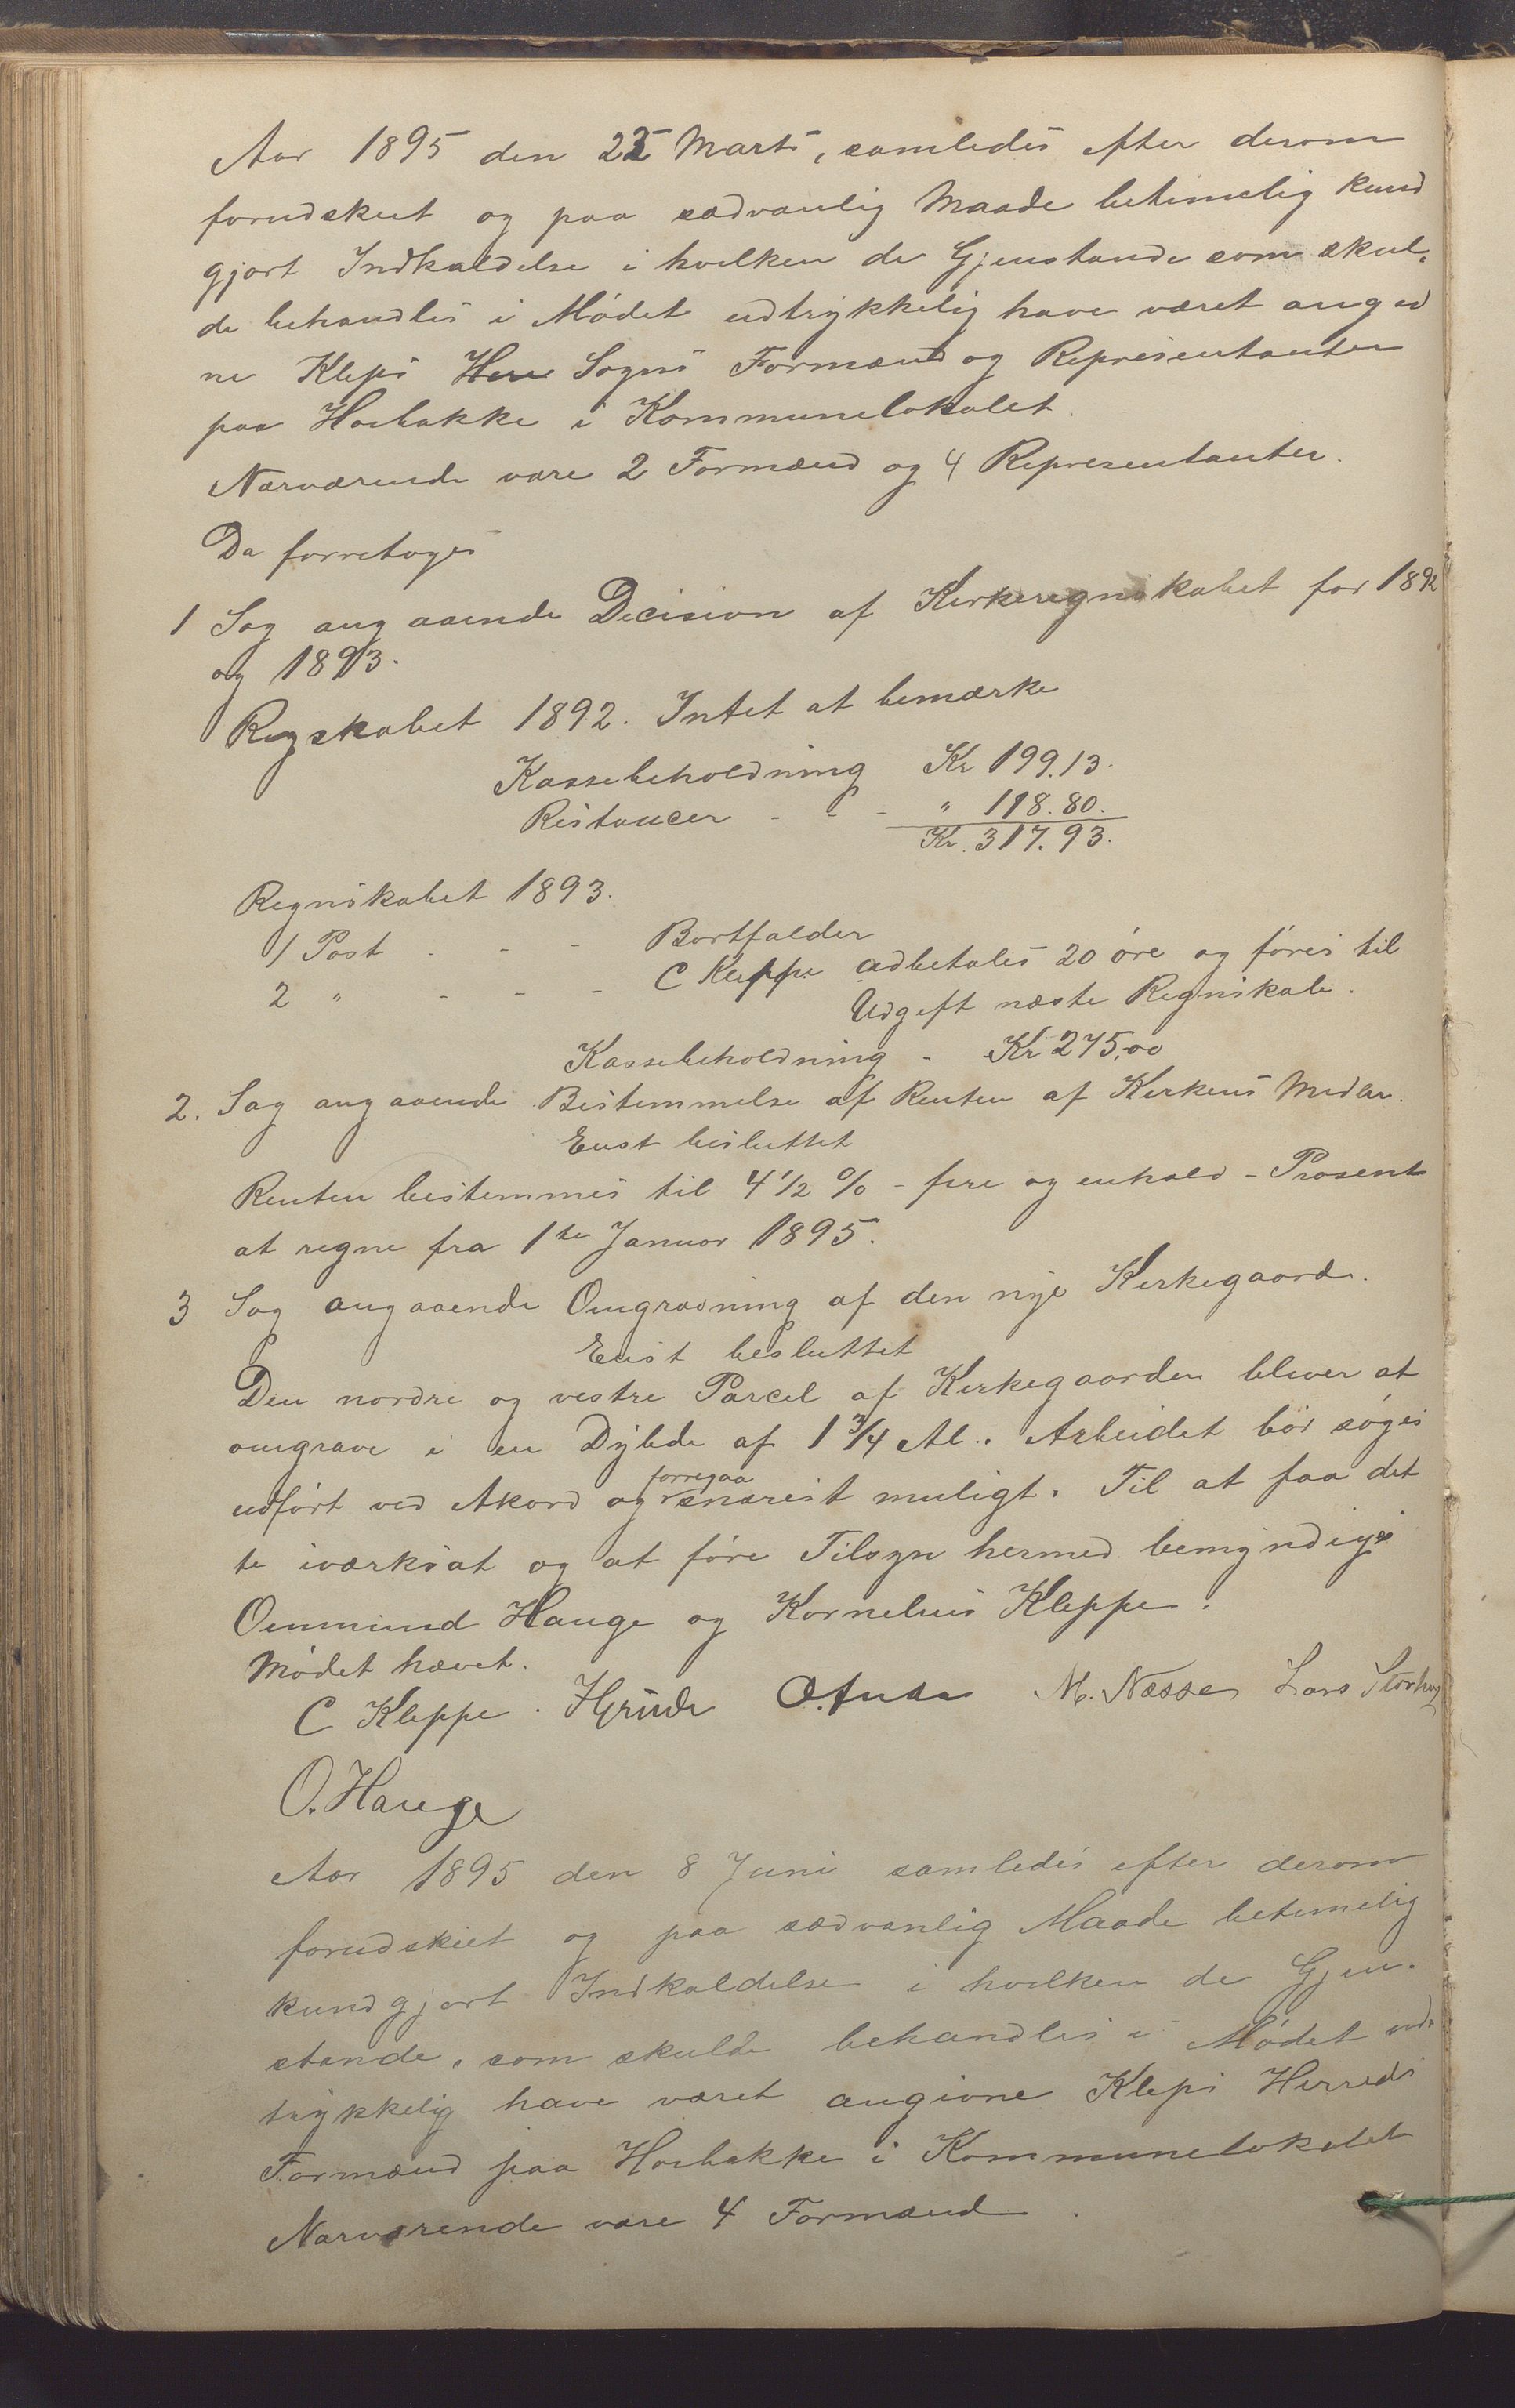 Aar 1895 den 22 Marts, samledes efter derom
forudskeet og paa sædvanlig Maade betimelig kund
gjort Indkaldelse i hvilken de Gjenstande som skul-
de behandles i Mødet udtrykkelig have været angiv
ne Kleps Here Sogns Formænd og Representanter
paa Hoibakke i Kommunelokalet.
Nærværende vare 2 Formænd og 4 Representanter.
Da forretoges
1 Sag angaaende Decision af Kirkeregnskabet for 1892
og 1893.
Regskabet 1892. Intet at bemærke
Kassebeholdning Kr 199.13.
Restancer - - - " 118.80.
Kr. 317.93.
Regnskabet 1893.
1 Post - - - Bortfalder
2 " - - - C Kleppe udbetales 20 øre og føres til
Udgift næste Regnskab.
Kassebeholdning - Kr 275,00
2. Sag angaaende Bestemmelse af Renten af Kirkens Midler.
Enst besluttet
Renten bestemmes til 4 1/2 % - fire og enhalv - Prosent
at regne fra 1te Januar 1895.
3 Sag angaaende Omgravning af den nye Kirkegaard.
Enst besluttet
Den nordre og vestre Parcel af Kirkegaarden bliver at
omgrave i en Dybde af 1 3/4 Al.. Arbeidet bør søges
udført ved Akord og forregaa snarest muligt. Til at faa det
te iværksat og at føre Tilsyn hermed bemyndiges
Ommund Hauge og Kornelius Kleppe.
Mødet hævet.
C Kleppe. M. Næsse Lars Storhug
O. Hauge
Aar 1895 den 8 Juni samledes efter derom
forudskeet og paa sædvanlig Maade betimelig
kundgjort Indkaldelse i hvilken de Gjen-
stande, som skulde behandles i Mødet ud-
trykkelig have været angivne Kleps Herreds
Formænd paa Hoibakke i Kommunelokalet
Nærværende vare 4 Formænd.